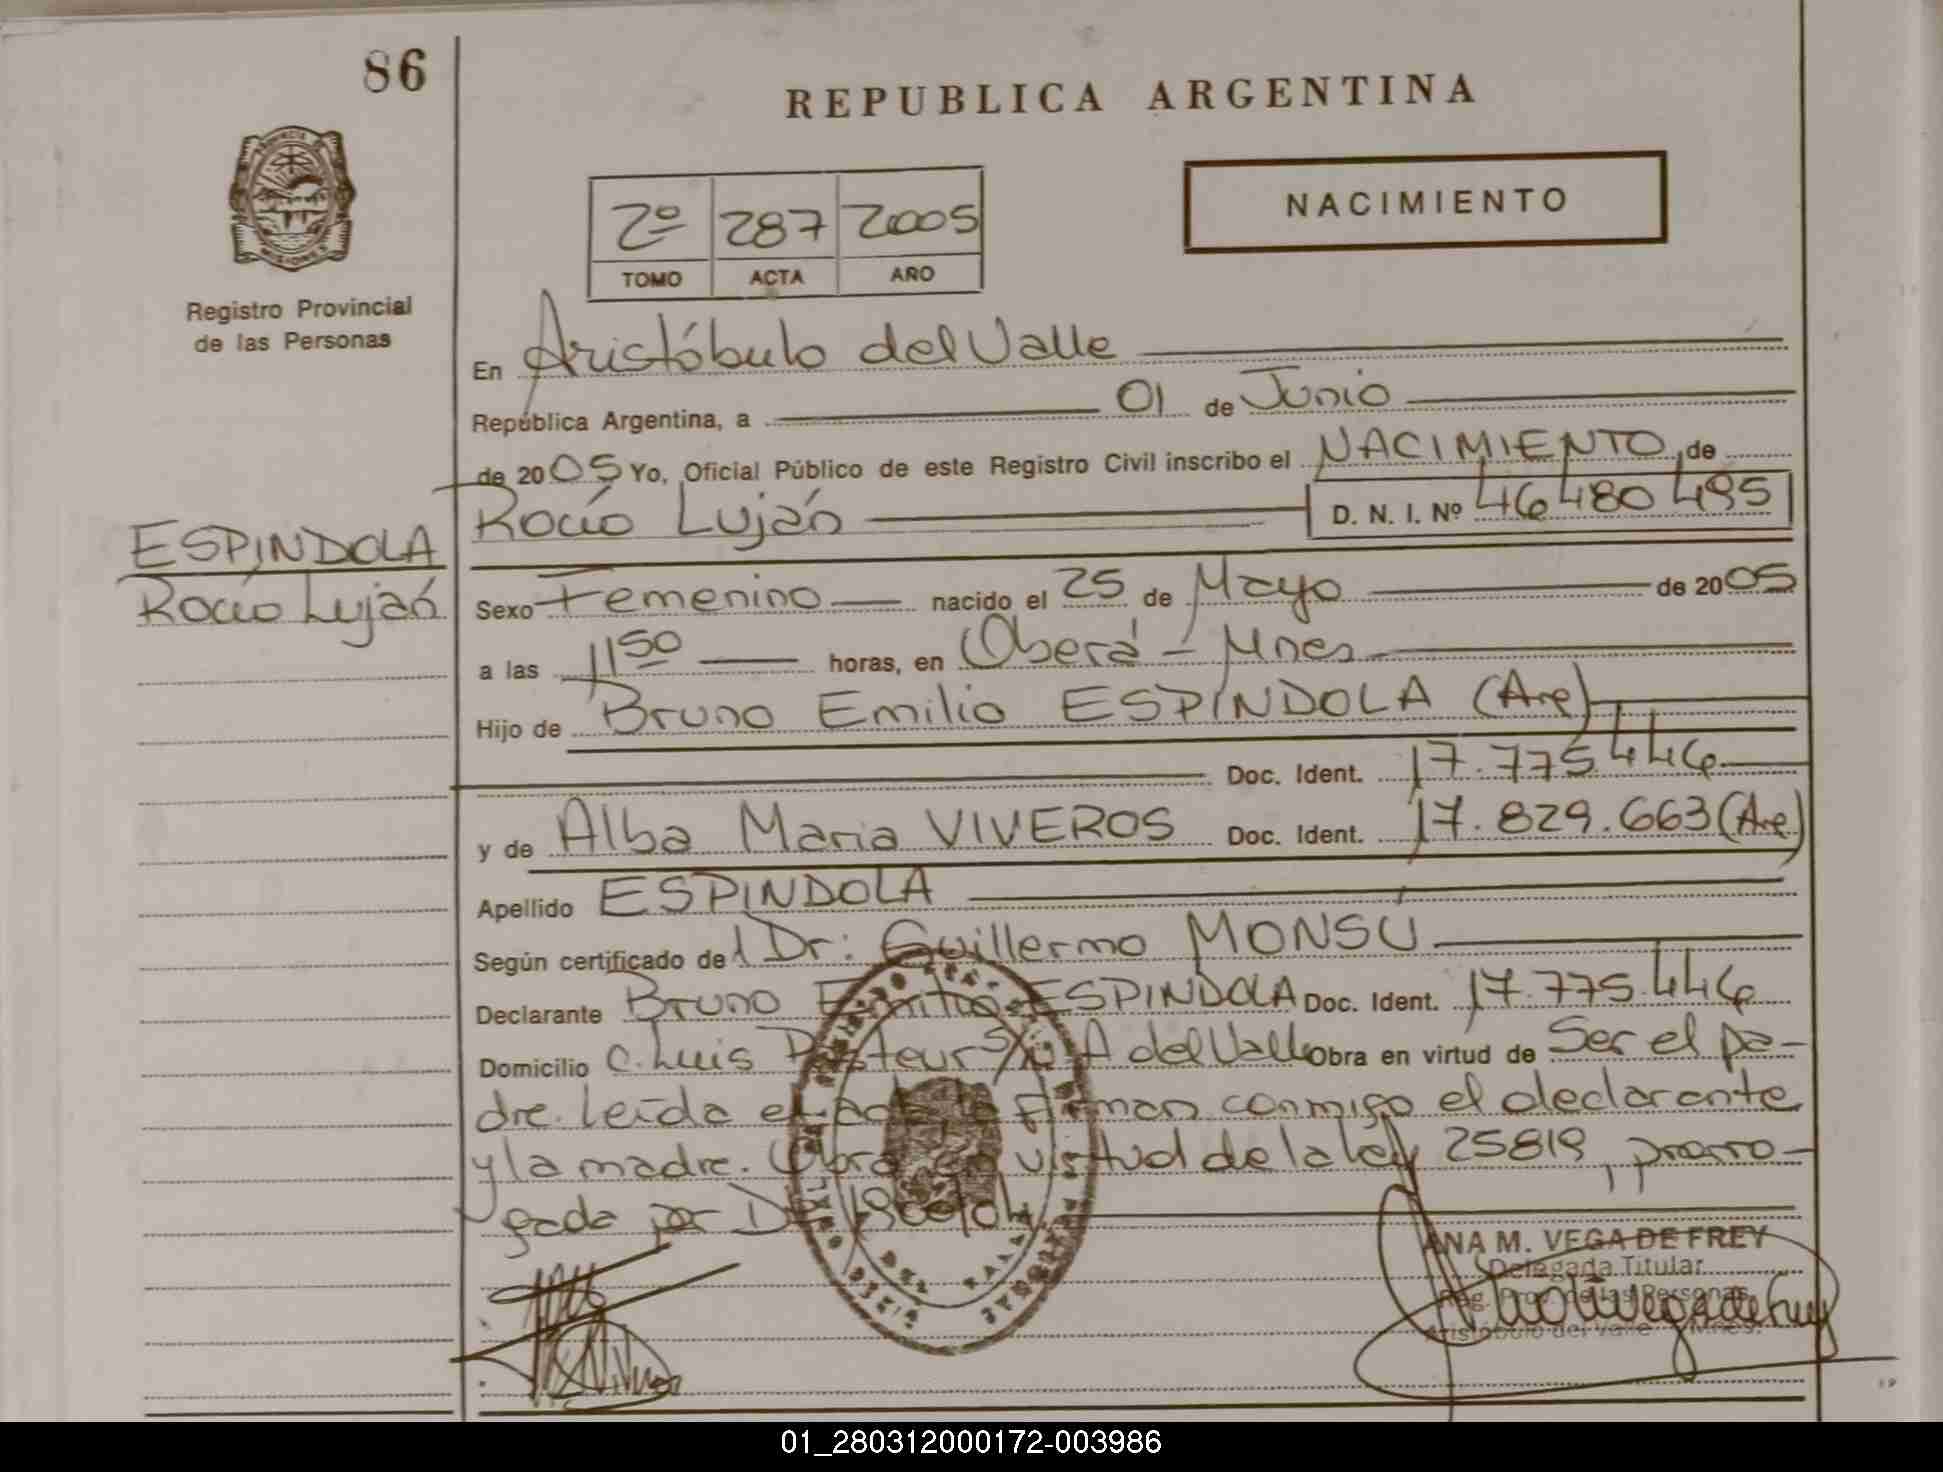 86
REPUBLICA ARGENTINA
NACIMIENTO
2º 287 2005
TOMO ACTA AÑO
PROVINCIA
MISIONES
Registro Provincial
de las Personas
En Aristóbulo del Valle
República Argentina, a 01 de Junio
de 2005 Yo, Oficial Público de este Registro Civil inscribo el NACIMIENTO, de
Rocío Luján D. N. I. Nº 46480495
ESPINDOLA
Rocío Luján
Sexo Femenino nacido el 25 de Mayo de 2005
a las 11 50 horas, en Oberá - Mnes
Hijo de Bruno Emilio ESPINDOLA (Arg)
Doc. Ident. 17.775.446
y de Alba Maria VIVEROS Doc. Ident. 17.829.663 (Arg)
Apellido ESPINDOLA
Según certificado del Dr: Guillermo MONSÚ
Declarante Bruno Emilio ESPINDOLA Doc. Ident. 17.775.446
Domicilio C. Luis Pasteur S/N A del Valle Obra en virtud de Ser el pa-
dre. Leída el acta la firman conmigo el declarante
y la madre. Obra en virtud de la ley 25819, prorro-
gada por
ANA M. VEGA DE FREY
Delegada Titular
Reg. Prov. de las Personas
Aristóbulo del Valle - Mnes.
01_280312000172-003986